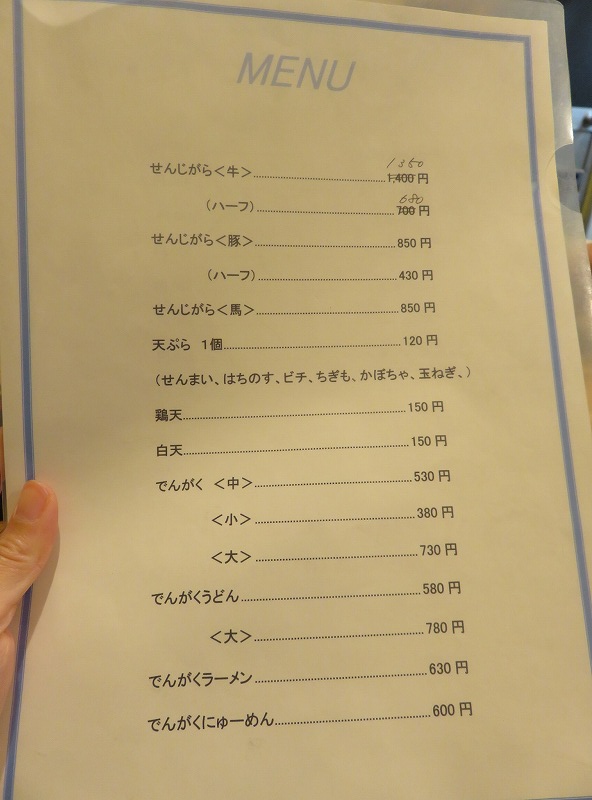 MENU
1350
せんじがら＜牛＞ 1,400 円
680
（ハーフ） 700 円
せんじがら＜豚＞ 850 円
（ハーフ） 430 円
せんじがら＜馬＞ 850 円
天ぷら 1個 120 円
（せんまい、はちのす、ビチ、ちぎも、かぼちゃ、玉ねぎ、）
鶏天 150 円
白天 150 円
でんがく ＜中＞ 530 円
＜小＞ 380 円
＜大＞ 730 円
でんがくうどん 580 円
＜大＞ 780 円
でんがくラーメン 630 円
でんがくにゅーめん 600 円